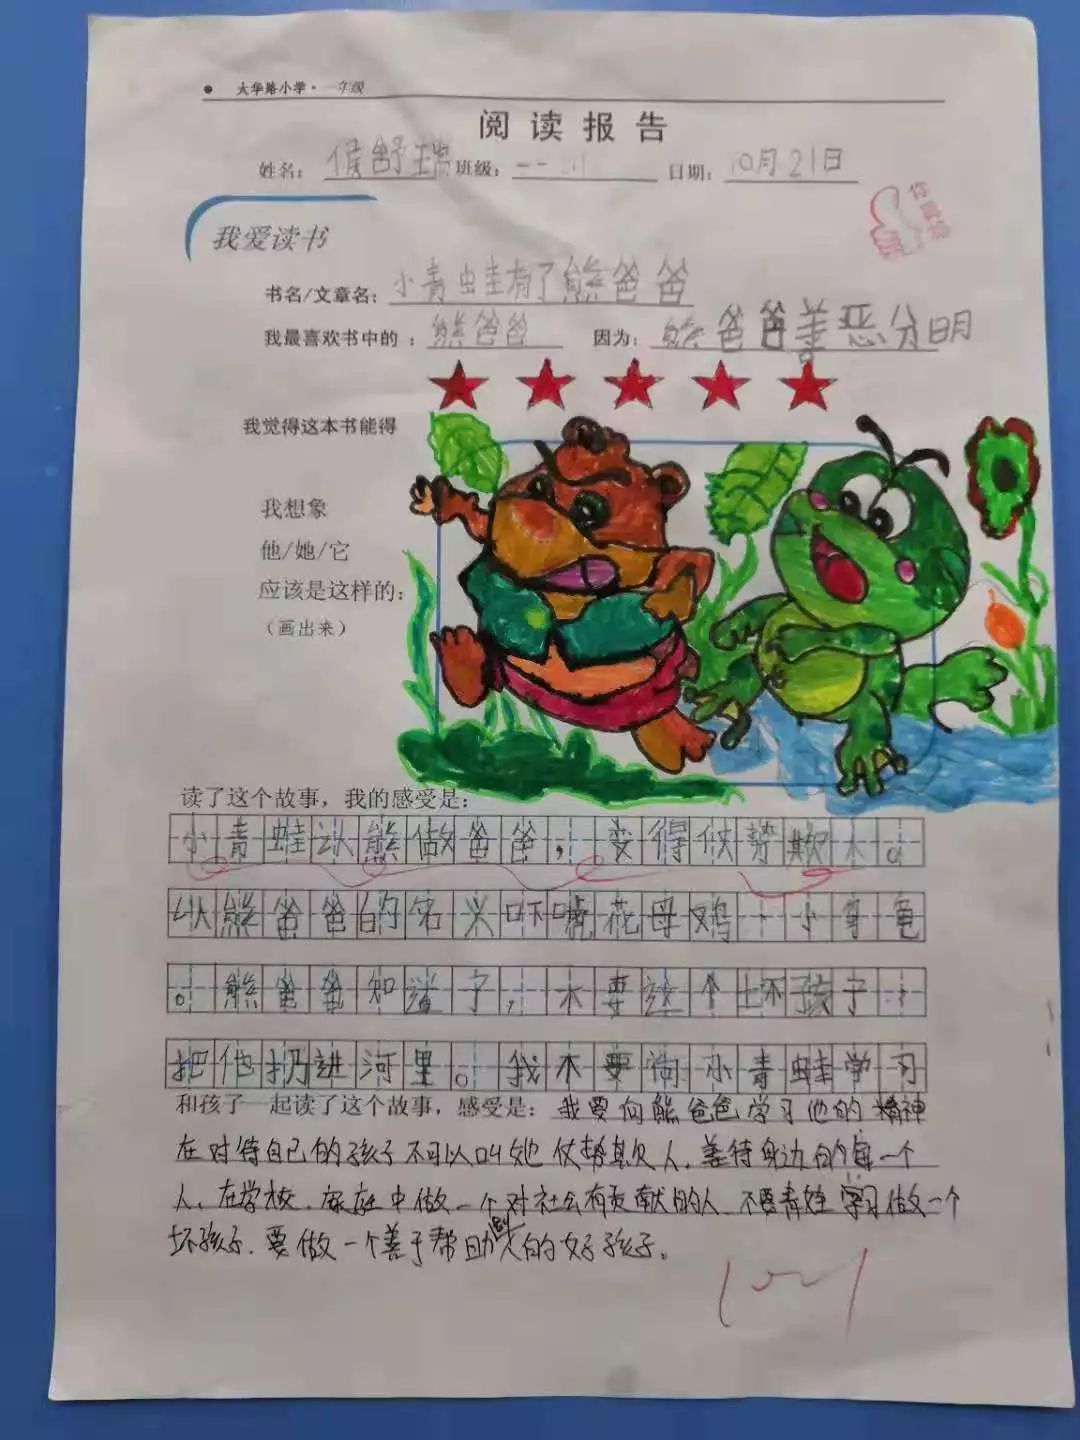 大华路小学·一年级
阅读报告
姓名：侯舒瑞 班级：一一 日期：10月21日
你真棒
我爱读书
书名/文章名：小青蛙有了熊爸爸
我最喜欢书中的：熊爸爸 因为：熊爸爸善恶分明
我觉得这本书能得
我想象
他/她/它
应该是这样的：
（画出来）
读了这个故事，我的感受是：
小青蛙认熊做爸爸，变得仗势欺人。
以熊爸爸的名义吓唬花母鸡、小乌龟
。熊爸爸知道了，不要这个坏孩子，
把他扔进河里。我不要向小青蛙学习
和孩子一起读了这个故事，感受是：我要向熊爸爸学习他的精神
在对待自己的孩子不可以叫她仗势欺人，善待身边的每一个
人，在学校、家庭中做一个对社会有贡献的人，不要青蛙学习做一个
坏孩子，要做一个善于帮助别人的好孩子。